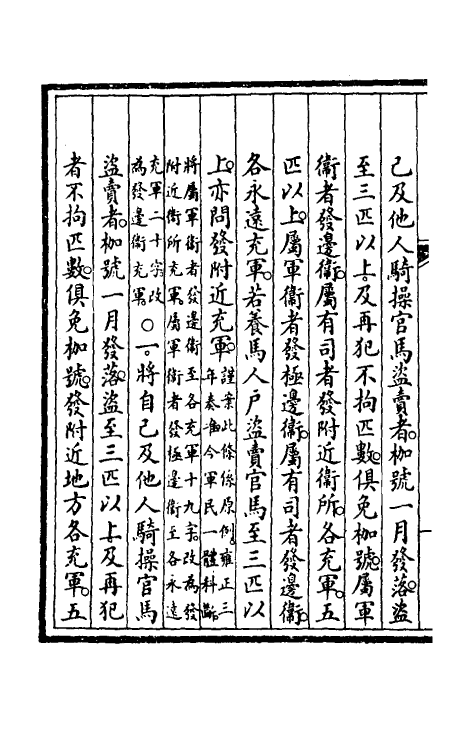 己及他人騎操官馬盜賣者。枷號一月發落。盜
至三匹以上。及再犯不拘匹數。俱免枷號。屬軍
衞者發邊衞。屬有司者發附近衞所。各充軍。五
匹以上。屬軍衞者發極邊衞。屬有司者發邊衞。
各永遠充軍。若養馬人戶盜賣官馬至三匹以
上。亦問發附近充軍。謹案此條係原例。雍正三
年奏准今軍民一體科斷。
將屬軍衞者發邊衞至各充軍十九字。改為發
附近衞所充軍。屬軍衞者發極邊衞至各永遠
充軍二十字。改
為發邊衞充軍。○一。將自己及他人騎操官馬
盜賣者。枷號一月發落。盜至三匹以上。及再犯
者不拘匹數。俱免枷號。發附近地方各充軍。五